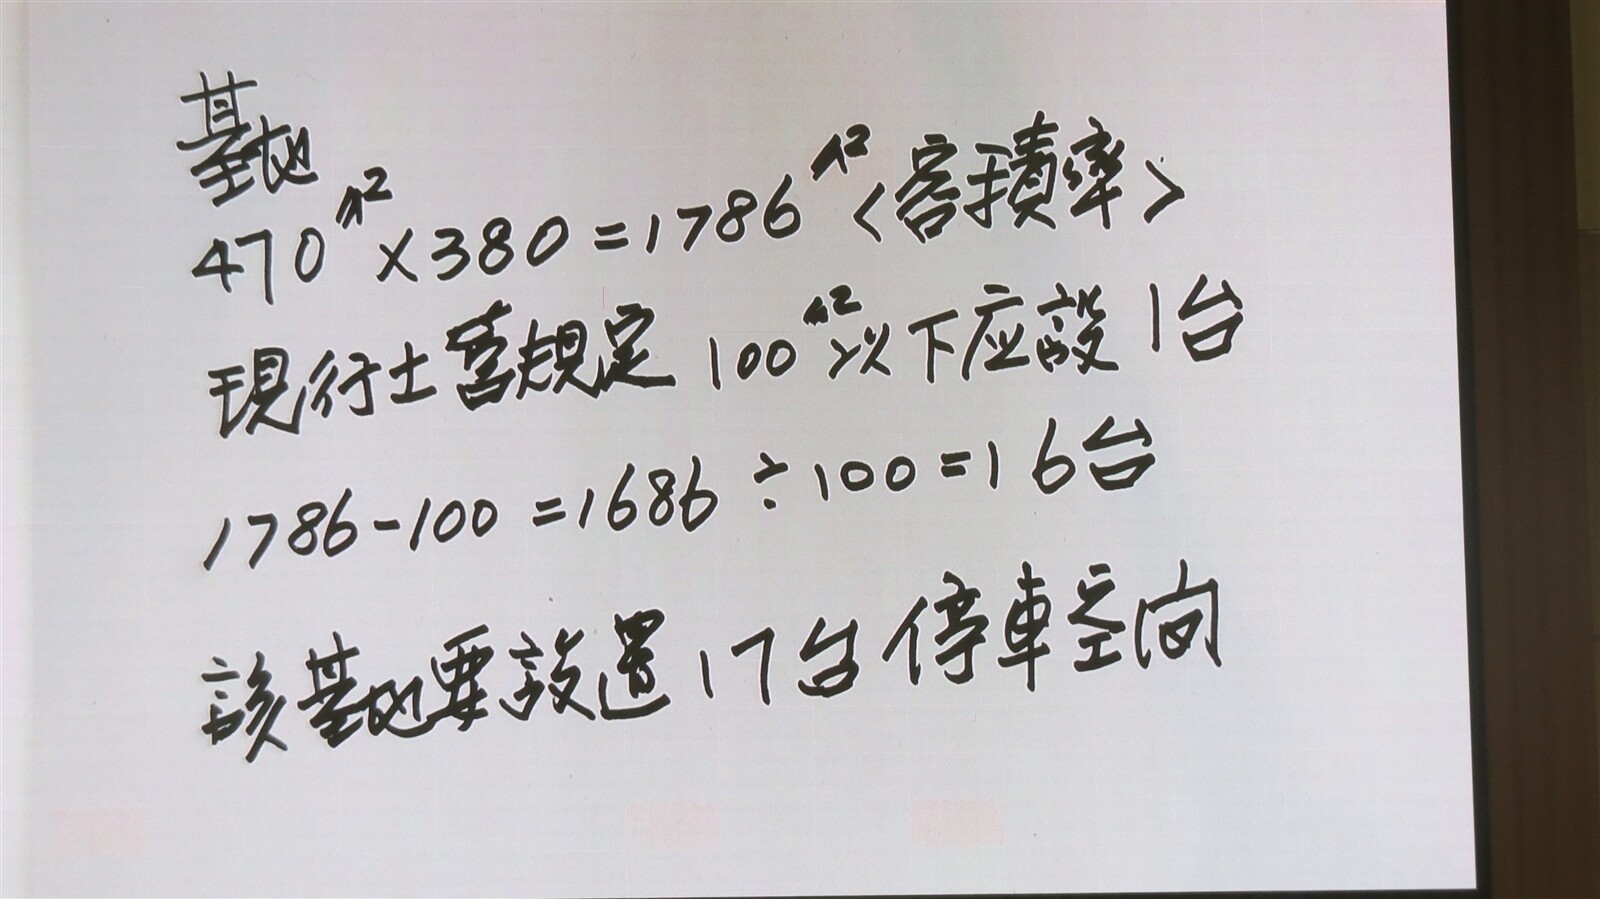 基地
470㎡×380=1786㎡<容積率>
現行土管規定100㎡以下应設1台
1786-100=1686÷100=16台
該基地要設置17台停車空间